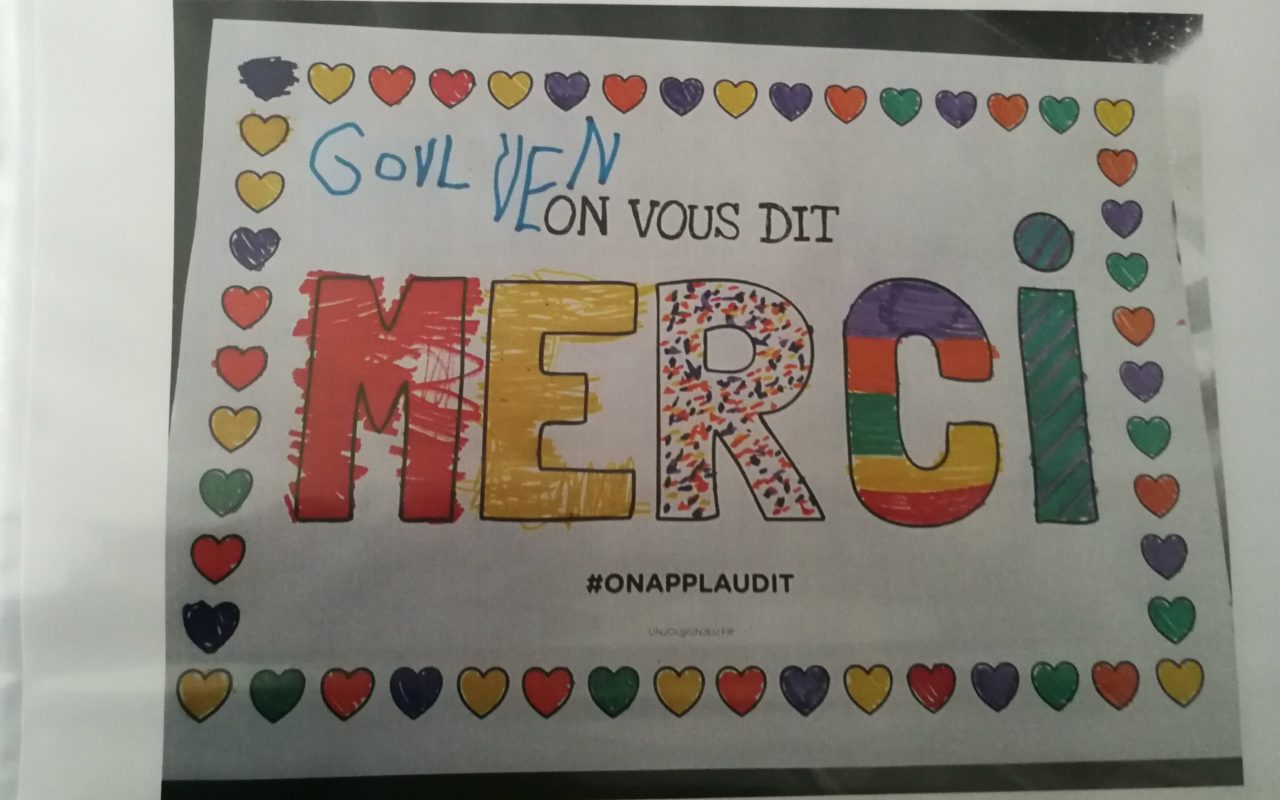 GOULVEN
ON VOUS DIT
MERCi
#ONAPPLAUDIT
UNJOURUNJEU.FR